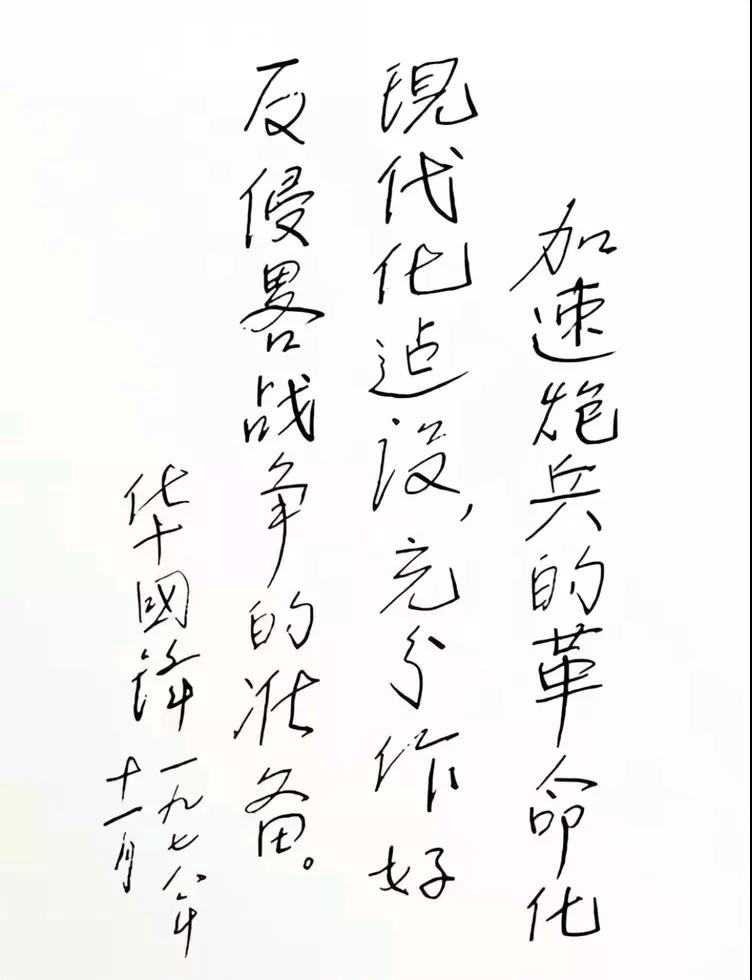 加速炮兵的革命化
現代化建设，充分作好
反侵畧战争的准备。
华國锋
一九七八年
十一月